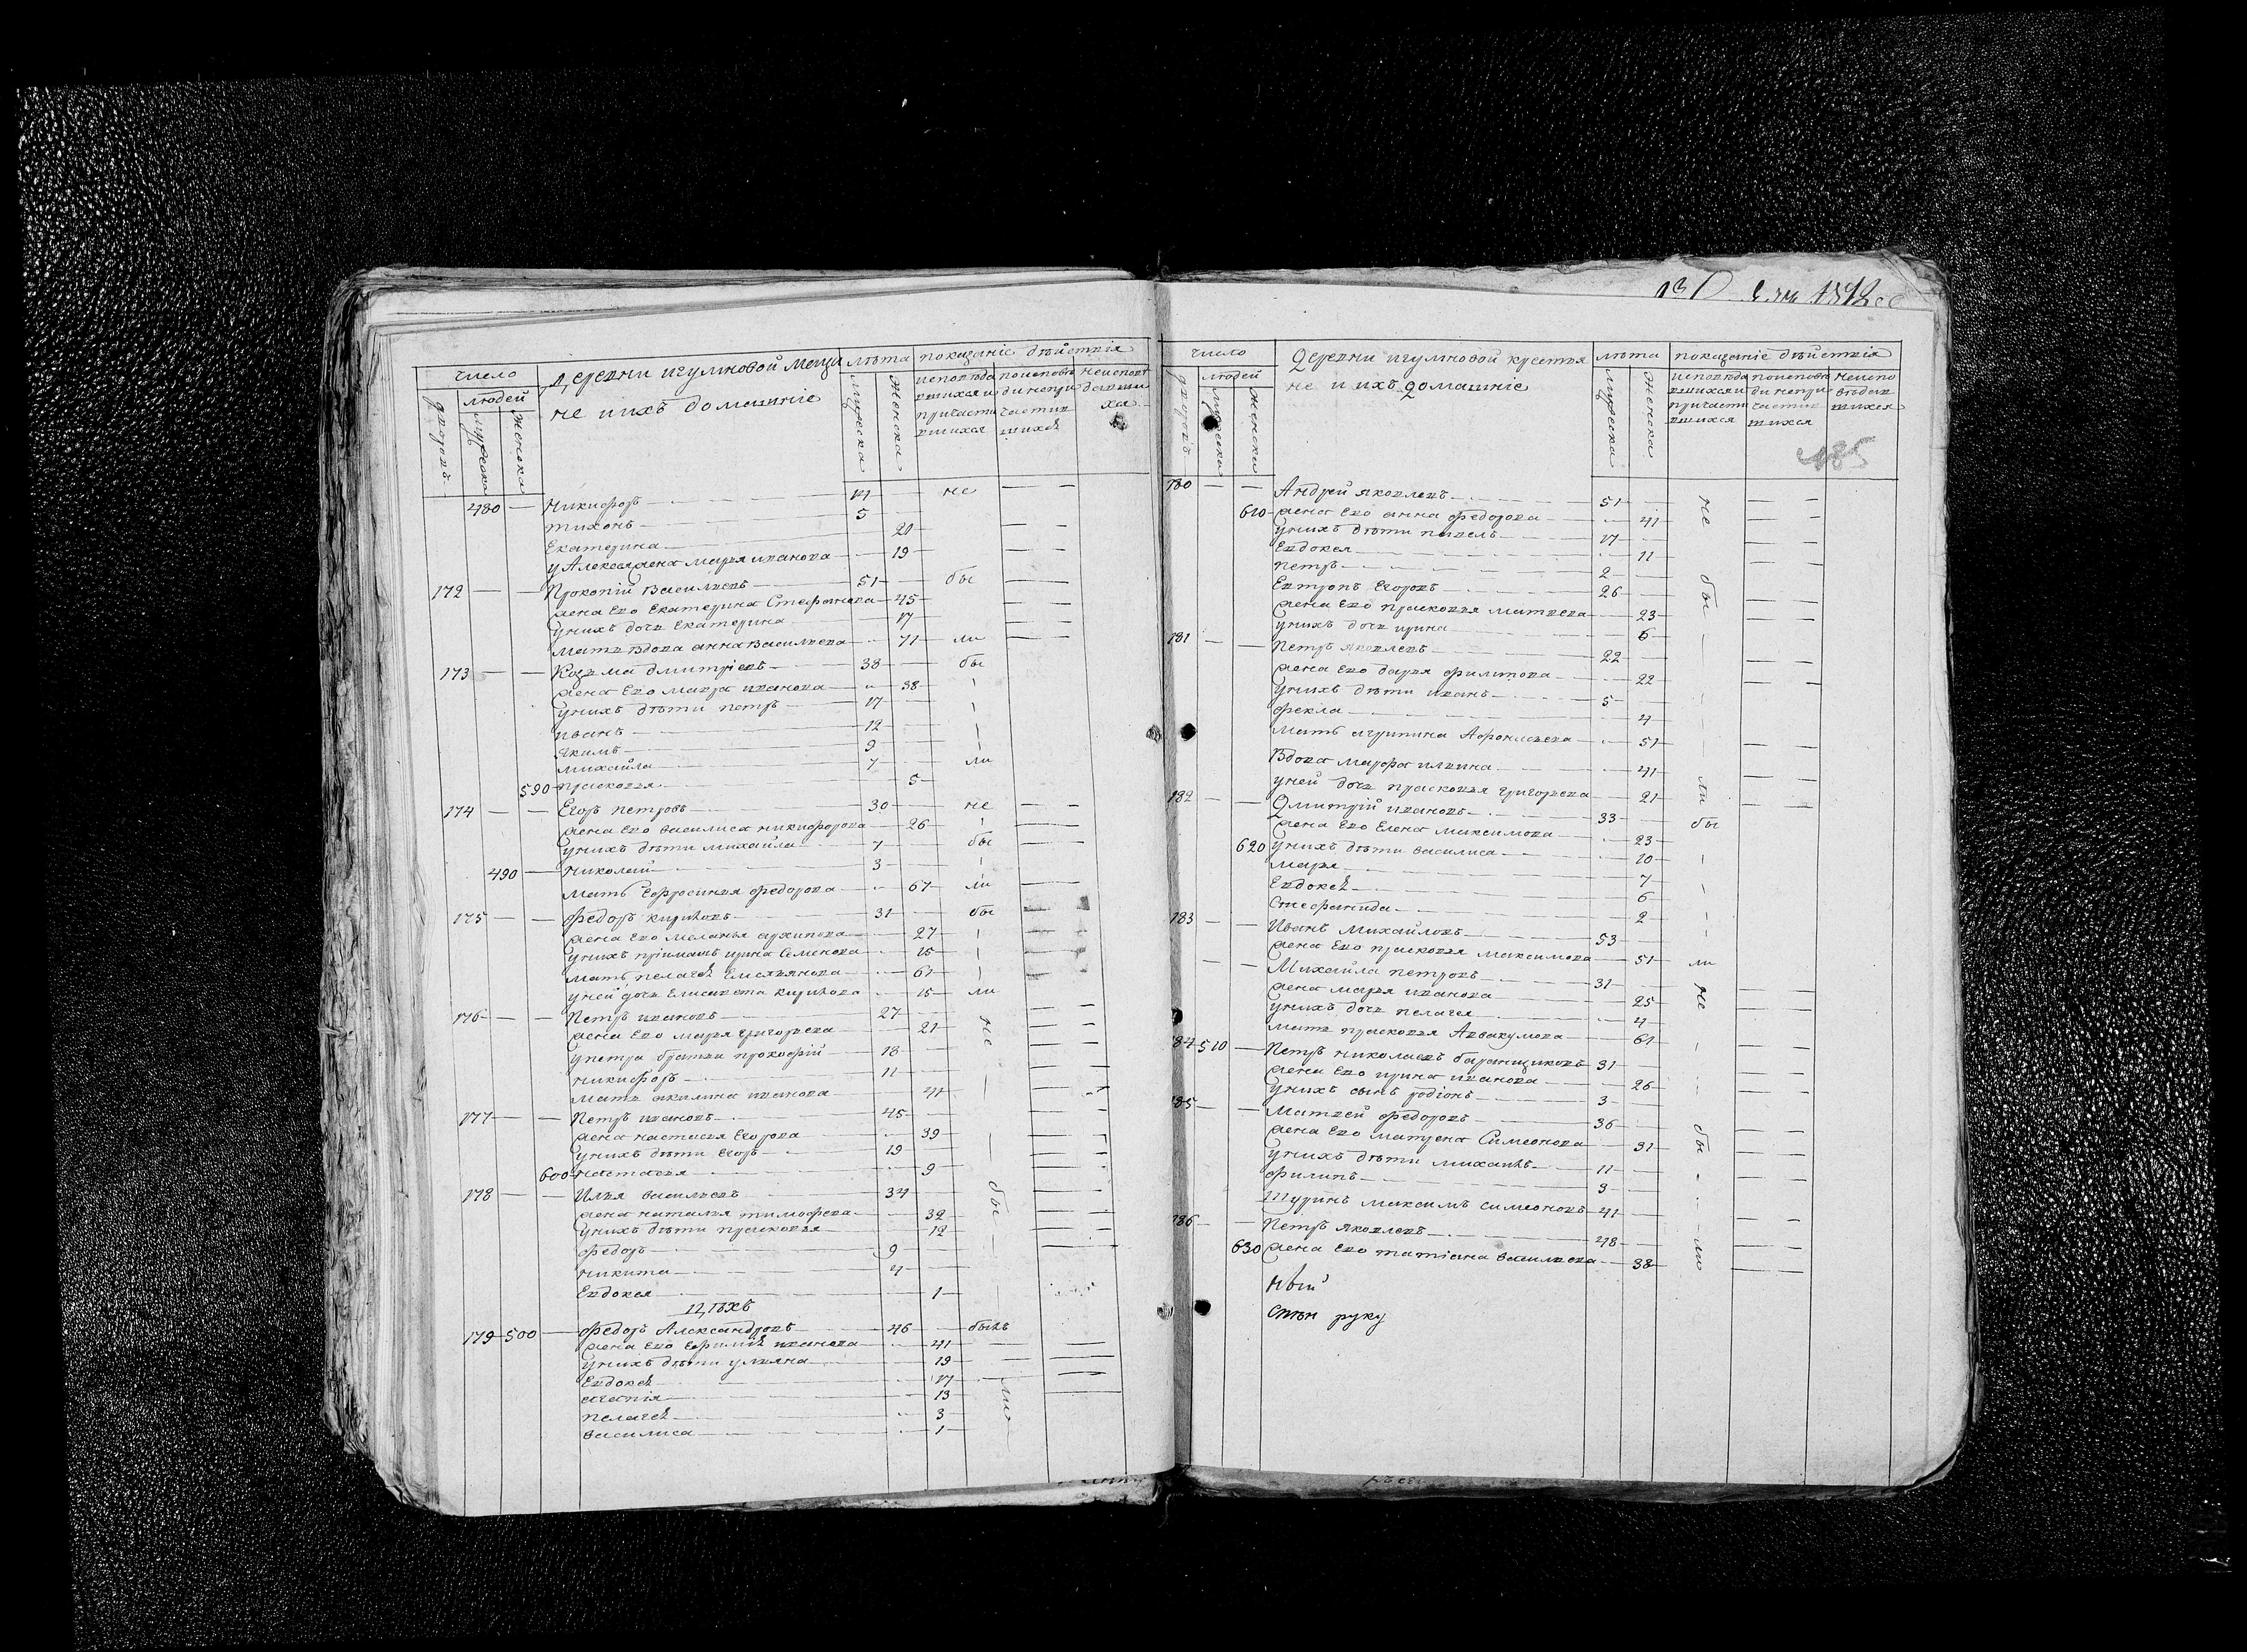 число
людей
дворовъ
мужеска
женска
Деревни игумновой мещи
не и ихъ домашніе
лѣта
мужеска
женска
показаніе дѣйствія
исповѣда вшихся и причасти вшихся
по исповѣ ди непри частив шихся
не исповѣ
480 — Никифоръ — 14 — не
Тихонъ — 5
Екатерина — 20
Марья иванова — 19
172 — — Прокопій Васильевъ — 51 — бы
жена ево Екатерина Стефанова — 45
у нихъ дочь Екатерина — 17
мать вдова анна Васильева — 71 — ли
173 — — Козьма дмитріевъ — 38 — бы
жена ево мавра иванова — 38
у нихъ дѣти петръ — 17
иванъ — 12
якимъ — 9
михайла — 7 — ли
590 прасковья — 5
174 — — Егоръ петровъ — 30 — не
жена ево василиса никифорова — 26
у нихъ дѣти михайла — 7 — бы
490 — николай — 3
мать Ефросинья федорова — 61 — ли
175 — — федоръ кириловъ — 31 — бы
жена ево меланья архипова — 27
у нихъ пріимашъ ирина Семенова — 15
мать пелагея Емельянова — 61
у ней дочь Елисавета кирилова — 15 — ли
176 — — Петръ ивановъ — 27 — не
жена ево марья григорьева — 21
у петра братья прокофій — 18
никифоръ — 11
мать акилина иванова — 41
177 — — Петръ ивановъ — 45
жена настасья Егорова — 39
у нихъ дѣти Егоръ — 19
600 настасья — 9
178 — — Илья васильевъ — 34 — бы
жена наталья тимофева — 32
у нихъ дѣти прасковья — 12
федоръ — 9
никита — 4
Евдокея — 1
цѣхъ
179 — 500 — федоръ Александровъ — 46 — былъ
жена ево Ефимія иванова — 41
у нихъ дѣти ульяна — 19
Евдокея — 17 — ли
агапія — 13
пелагея — 3
василиса — 1
число
людей
дворовъ
мужеска
женска
Деревни игумновой крестья
не и ихъ домашніе
лѣта
мужеска
женска
показаніе дѣйствія
исповѣда вшихся и причасти вшихся
по исповѣ ди непри частив шихся
не испо вѣдав шихся
185
180 — — Андрей яковлевъ — 51 — не
610 жена ево анна федорова — 41
у нихъ дѣти павелъ — 17
Евдокея — 11
петръ — 2 — бы
Евтропъ Егоровъ — 26
жена ево прасковья матвева — 23
у нихъ дочь ирина — 6
181 — — Петръ яковлевъ — 22
жена ево дарья филипова — 22
у нихъ дѣти иванъ — 5
фекла — 4
мать агрипина Афонасьева — 51
Вдова марфа ильина — 41
у ней дочь прасковья григорьева — 21 — ли
182 — — Дмитрій ивановъ — 33 — бы
жена ево Елена максимова — 23
620 у нихъ дѣти василиса — 10
марья — 7
Евдокея — 6
Стефанида — 2
183 — — Иванъ михайловъ — 53
жена ево прасковья максимова — 51 — ли
— — Михайла петровъ — 31 — не
жена марья иванова — 25
у нихъ дочь пелагея — 4
мать прасковья Аввакумова — 61
184 510 — Петръ николаевъ баранщиковъ 31
жена ево ирина иванова — 26
у нихъ сынъ родіонъ — 3
185 — — матвей федоровъ — 36 — бы
жена ево матрена Симеонова — 31
у нихъ дѣти михаилъ — 11
филипъ — 9
шуринъ максимъ симеоновъ — 41
186 — — Петръ яковлевъ — 48 — ли
630 жена ево татіана васильева — 38
ный
руку